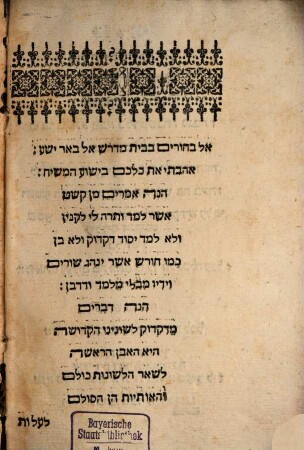 אל בחורים בבית מדרש אל באר ישע :
אהבתי את כלכם בישוע המשיח :
הנה אמרים מן קשט
אשר למד ותרה לי לקנין
ולא למד יסוד דקדוק ולא בן
כמו חורש אשר ינהג שורים
וידיו מבלי מלמד ודרבן :
הנה דברים
מדקדוק לשונינו הקדושה
היא האבן הראשה
לשאר הלשונות כולם
והאותיות הן הסולם
לעלות
Bayerische
Staatsbibliothek